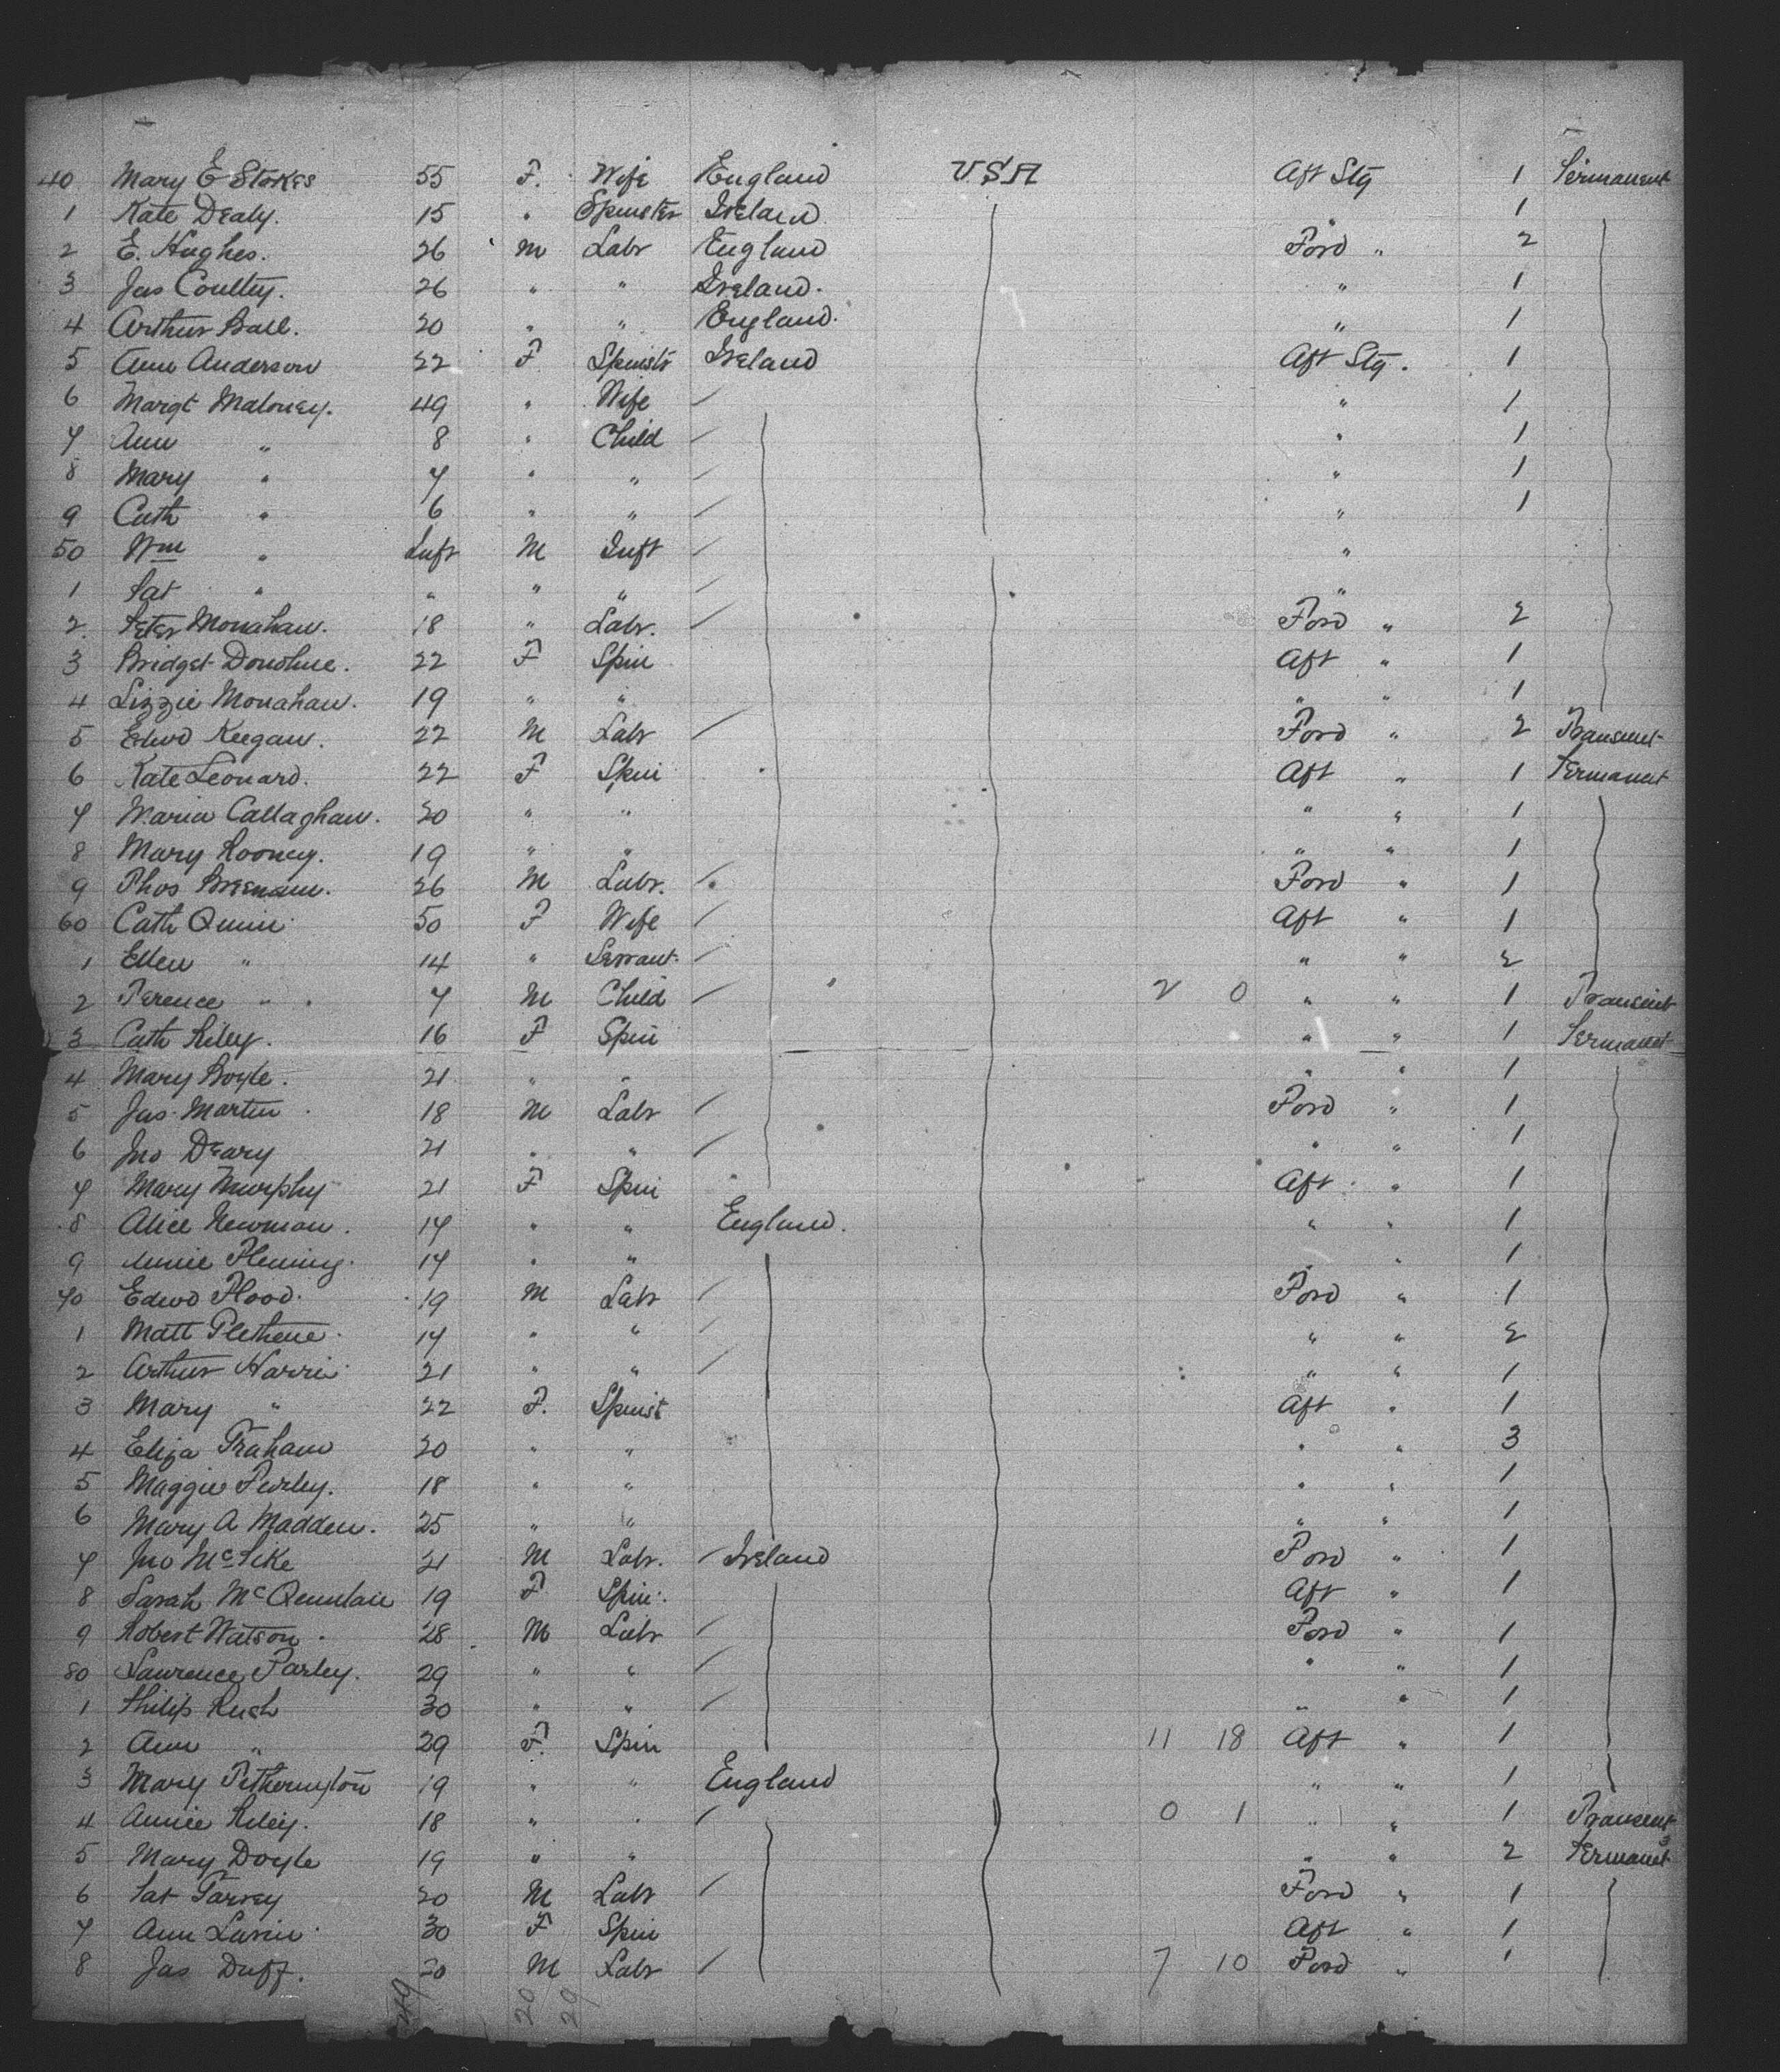 40 Mary E Stokes 55 F. Wife England USA Aft Stg 1 Permanent
1 Kate Dealy. 15 " Spinster Ireland " 1
2 E. Hughes. 26 M Labr England Ford " 2
3 Jas Coultry. 26 " " Ireland. " 1
4 Arthur Ball. 20 " " England. " 1
5 Ann Anderson 22 F Spinstr Ireland Aft Stg. 1
6 Margt Maloney. 49 " Wife " 1
7 Ann " 8 " Child " 1
8 Mary " 7 " " " 1
9 Cath " 6 " " " 1
50 Wm " Inft M Inft "
1 Pat " " " " "
2 Peter Monahan. 18 " Labr. Ford " 2
3 Bridget Donohue. 22 F Spin Aft " 1
4 Lizzie Monahan. 19 " " " " 1
5 Edwd Keegan. 22 M Labr Ford " 2 Transient
6 Kate Leonard. 22 F Spin Aft " 1 Permanent
7 Maria Callaghan. 20 " " " " 1
8 Mary Rooney. 19 " " " " 1
9 Thos Brennan. 26 M Labr. Ford " 1
60 Cath Quinn 50 F Wife Aft " 1
1 Ellen " 14 " Servant. " " 2
2 Terence " 7 M Child 2 0 " " 1 Transient
3 Cath Riley. 16 F Spin " " 1 Permanent
4 Mary Boyle. 21 " " " " 1
5 Jas. Martin 18 M Labr Ford " 1
6 Jno Deary 21 " " " " 1
7 Mary Murphy 21 F Spin Aft " 1
8 Alice Newman. 17 " " England. " " 1
9 Annie Fleming. 17 " " " " 1
70 Edwd Flood. 19 M Labr Ford " 1
1 Matt 17 " " " " 2
2 Arthur Harris 21 " " " " 1
3 Mary " 22 F. Spinst Aft " 1
4 Eliza Graham 20 " " " " 3
5 Maggie Furley. 18 " " " " 1
6 Mary A Madden. 25 " " " " 1
7 Jno McPike 21 M Labr. Ireland Ford " 1
8 Sarah McQuinlan 19 F Spin. Aft " 1
9 Robert Watson. 28 M Labr Ford " 1
80 Lawrence Farley. 29 " " " " 1
1 Philip Rush 30 " " " " 1
2 Ann " 29 F. Spin 11 18 Aft " 1
3 Mary Petherington 19 " " England " " 1
4 Annie Riley. 18 " " 0 1 " " 1 Transient
5 Mary Doyle 19 " " " " 2 Permanent
6 Pat Garvey 20 M Labr Ford " 1
7 Ann 30 F Spin Aft " 1
8 Jas Duff. 20 M Labr 7 10 Ford " 1
20 29